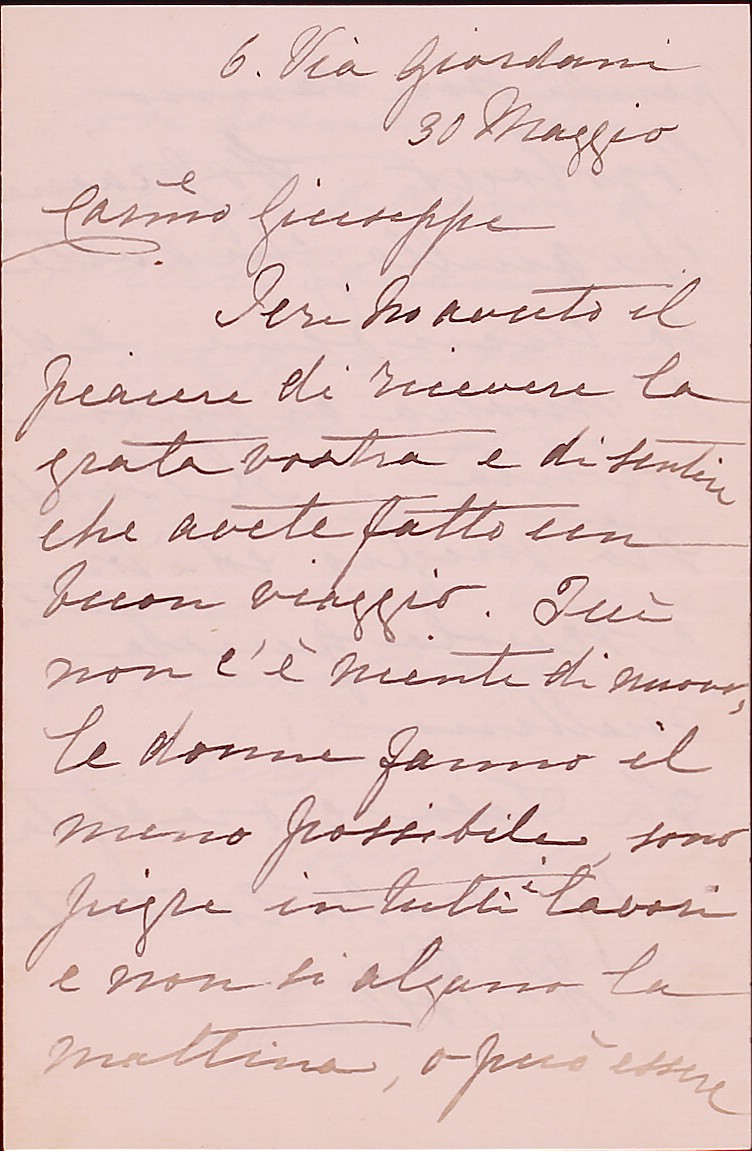 6. Via Giordani
30 Maggio
Carmo e Giuseppe
Ieri ho avuto il
piacere di ricevere la
grata vostra e di sentire
che avete fatto un
buon viaggio. Quì
non c'è niente di nuovo,
le donne fanno il
meno possibile, sono
pigre in tutti i lavori
e non si alzano la
mattina, o può essere